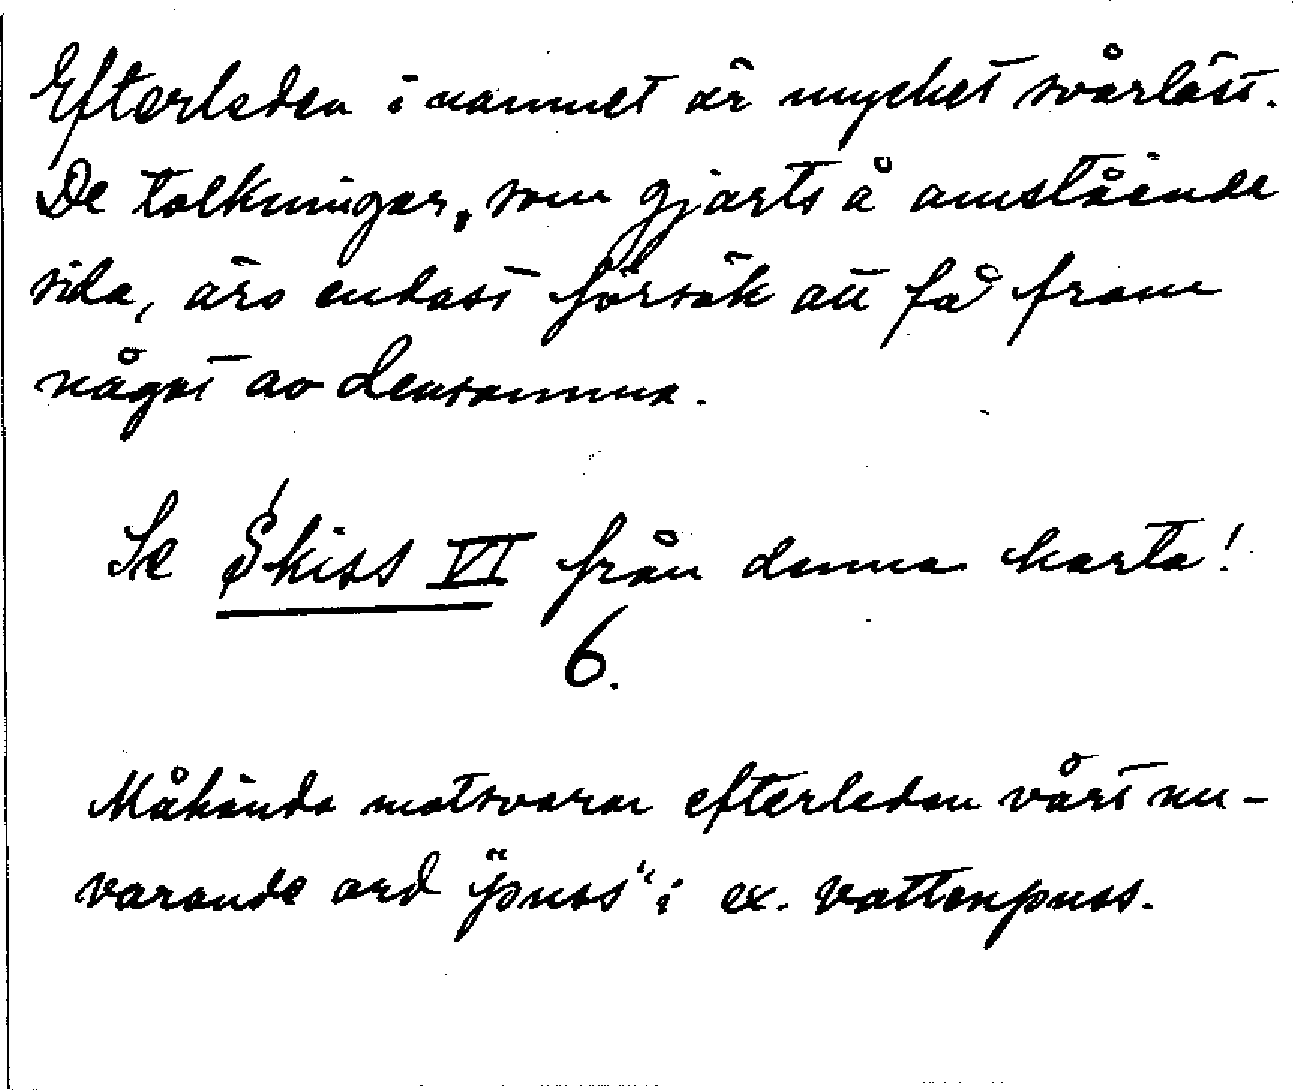 Efterleden i namnet är mycket svårläst.
De tolkningar, som gjorts å omstående
sida, äro endast försök att få fram
något av densamma.
Se Skiss VI från denna karta!
6.
Måhända motsvarar efterleden vårt nu-
varande ord "puss" i ex. vattenpuss.